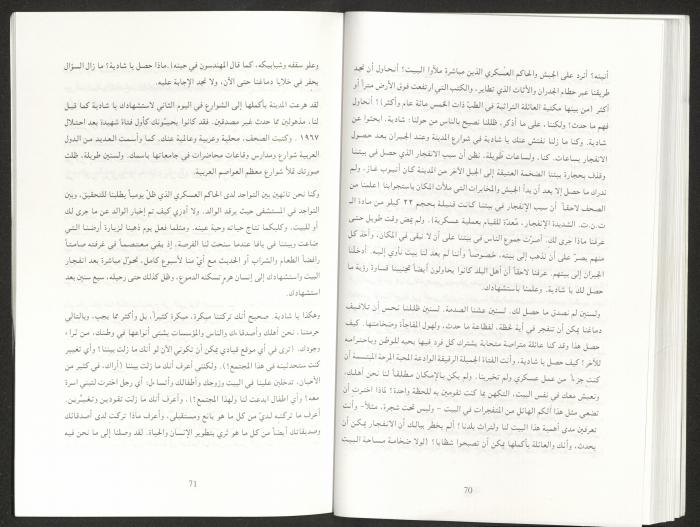 أثينه؟ أنرد على الجيش والحاكم العسكري الذين مباشرة ملأوا البيت؟ أنحاول أن نجد
طريقنا عبر حطام الجدران والأثاث الذي تطاير، والكتب التي ارتفعت فوق الأرض متراً أو
أكثر (من بينها مكتبة العائلة التراثية في الطب ذات الخمس مائة عام وأكثر)؟ أنحاول
فهم ما حدث؟ ولكننا، على ما أذكر، ظللنا نصيح بالناس من حولنا: شادية، ابحثوا عن
شادية. وكنا ما زلنا نفتش عنك يا شادية في شوارع المدينة وعند الجيران بعد حصول
الانفجار بساعات. كنا، ولساعات طويلة، نظن أن سبب الانفجار الذي حصل في بيتنا
وقذف بحجارة بيتنا الضخمة العتيقة إلى الجبل الآخر من المدينة كان أنبوب غاز. ولم
ندرك ما حصل إلا بعد أن بدأ الجيش والمخابرات التي ملأت المكان باستجوابنا (علمنا من
الصحف لاحقاً أن سبب الانفجار في بيتنا كانت قنبلة بحجم ٢٢ كيلو من مادة الـ
ت.ن.ت. الشديدة الانفجار، مُعدّة للقيام بعملية عسكرية). ولم يمض وقت طويل حتى
عرفنا ماذا جرى لك. أصرّت جموع الناس في بيتنا على أن لا نبقى في المكان، وأخذ كل
منهم يصرّ على أن نذهب إلى بيته، خصوصاً وأننا لم يعد لنا بيت نأوي إليه. أدخلَنا
الجيران إلى بيتهم. عرفنا لاحقاً أن أهل البلد كانوا يحاولون أيضاً تجنيبنا قساوة رؤية ما
حصل لك يا شادية. وعلمنا باستشهادك.
ولسنين لم نصدق ما حصل لك. لسنين عشنا الصدمة. لسنين ظللنا نحس أن تلافيف
دماغنا يمكن أن تنفجر في أية لحظة، لفظاعة ما حدث، ولهول المفاجأة وضخامتها. كيف
حصل هذا وقد كنا عائلة متراصة متحابة يشترك كل فرد فيها بحبه للوطن وباحترامه
للآخر؟ كيف حصل يا شادية، وأنت الفتاة الجميلة الرقيقة الوادعة المحبة المرحة المبتسمة أن
كنت جزءاً من عمل عسكري ولم تخبرينا. ولم يكن بالإمكان مطلقاً لنا نحن أهلك،
ونعيش معك في نفس البيت، التكهن بما كنت تقومين به للحظة واحدة؟ لماذا اخترت أن
تضعي مثل هذا الكم الهائل من المتفجرات في البيت – وليس تحت شجرة، مثلاً– وأنت
تعرفين مدى أهمية هذا البيت لنا ولتراث بلدنا؟ ألم يخطر ببالك أن الانفجار يمكن أن
يحدث، وأنك والعائلة بأكملها يمكن أن تصبحوا شظايا؟ (لولا ضخامة مساحة البيت
70
وعلو سقفه وشبابيكه، كما قال المهندسون في حينه). ماذا حصل يا شادية؟ ما زال السؤال
يحفر في خلايا دماغنا حتى الآن، ولا نجد الإجابة عليه.
لقد هرعت المدينة بأكملها إلى الشوارع في اليوم الثاني لاستشهادك يا شادية كما قيل
لنا، مذهولين مما حدث غير مصدقين. فقد كانوا يحيّونك كأول فتاة شهيدة بعد احتلال
١٩٦٧. وكتبت الصحف، محلية وعربية وعالمية عنك. كما وأسمت العديد من الدول
العربية شوارع ومدارس وقاعات محاضرات في جامعاتها باسمك. ولسنين طويلة، ظلت
صورتك تملأ شوارع معظم العواصم العربية.
وكنا نحن تائهين بين التواجد لدى الحاكم العسكري الذي ظل يومياً يطلبنا للتحقيق، وبين
التواجد في المستشفى حيث يرقد الوالد. ولا أدري كيف تم إخبار الوالد عن ما جرى لك
أو للبيت، وكليكما نتاج حياته وحبة عينه. ومثلما فعل يوم ذهبنا لزيارة أرضنا التي
ضاعت وبيتنا في يافا عندما سنحت لنا الفرصة، إذ بقي معتصماً في غرفته صامتاً
رافضاً الطعام والشراب أو الحديث مع أيّ منا لأسبوع كامل، تحوّل مباشرة بعد انفجار
البيت واستشهادك إلى إنسان هرم تسكنه الدموع، وظل كذلك حتى رحيله، سبع سنين بعد
استشهادك.
وهكذا يا شادية. صحيح أنك تركتنا مبكرة، مبكرة كثيراً، بل وأكثر مما يجب، وبالتالي
حرمتنا، نحن أهلك وأصدقاءك والناس والمؤسسات بشتى أنواعها في وطنك، من ثراء
وجودك. (ترى في أي موقع قيادي يمكن أن تكوني الآن لو أنك ما زلت بيننا؟ وأي تغيير
كنت ستحدثينه في هذا المجتمع؟). ولكنني أعرف أنك ما زلت بيننا (أراك، في كثير من
الأحيان، تدخلين علينا في البيت وزوجك وأطفالك وأتساءل: أي رجل اخترت لتبني أسرة
معه؟ وأي أطفال أبدعت لنا ولهذا المجتمع؟). وأعرف أنك ما زلت تقودين وتغيّرين.
أعرف ما تركته لديّ من كل ما هو يانع ومستقبلي، وأعرف ماذا تركت لدى أصدقائك
وصديقاتك أيضاً من كل ما هو ثري بتطوير الإنسان والحياة. لقد وصلنا إلى ما نحن فيه
71